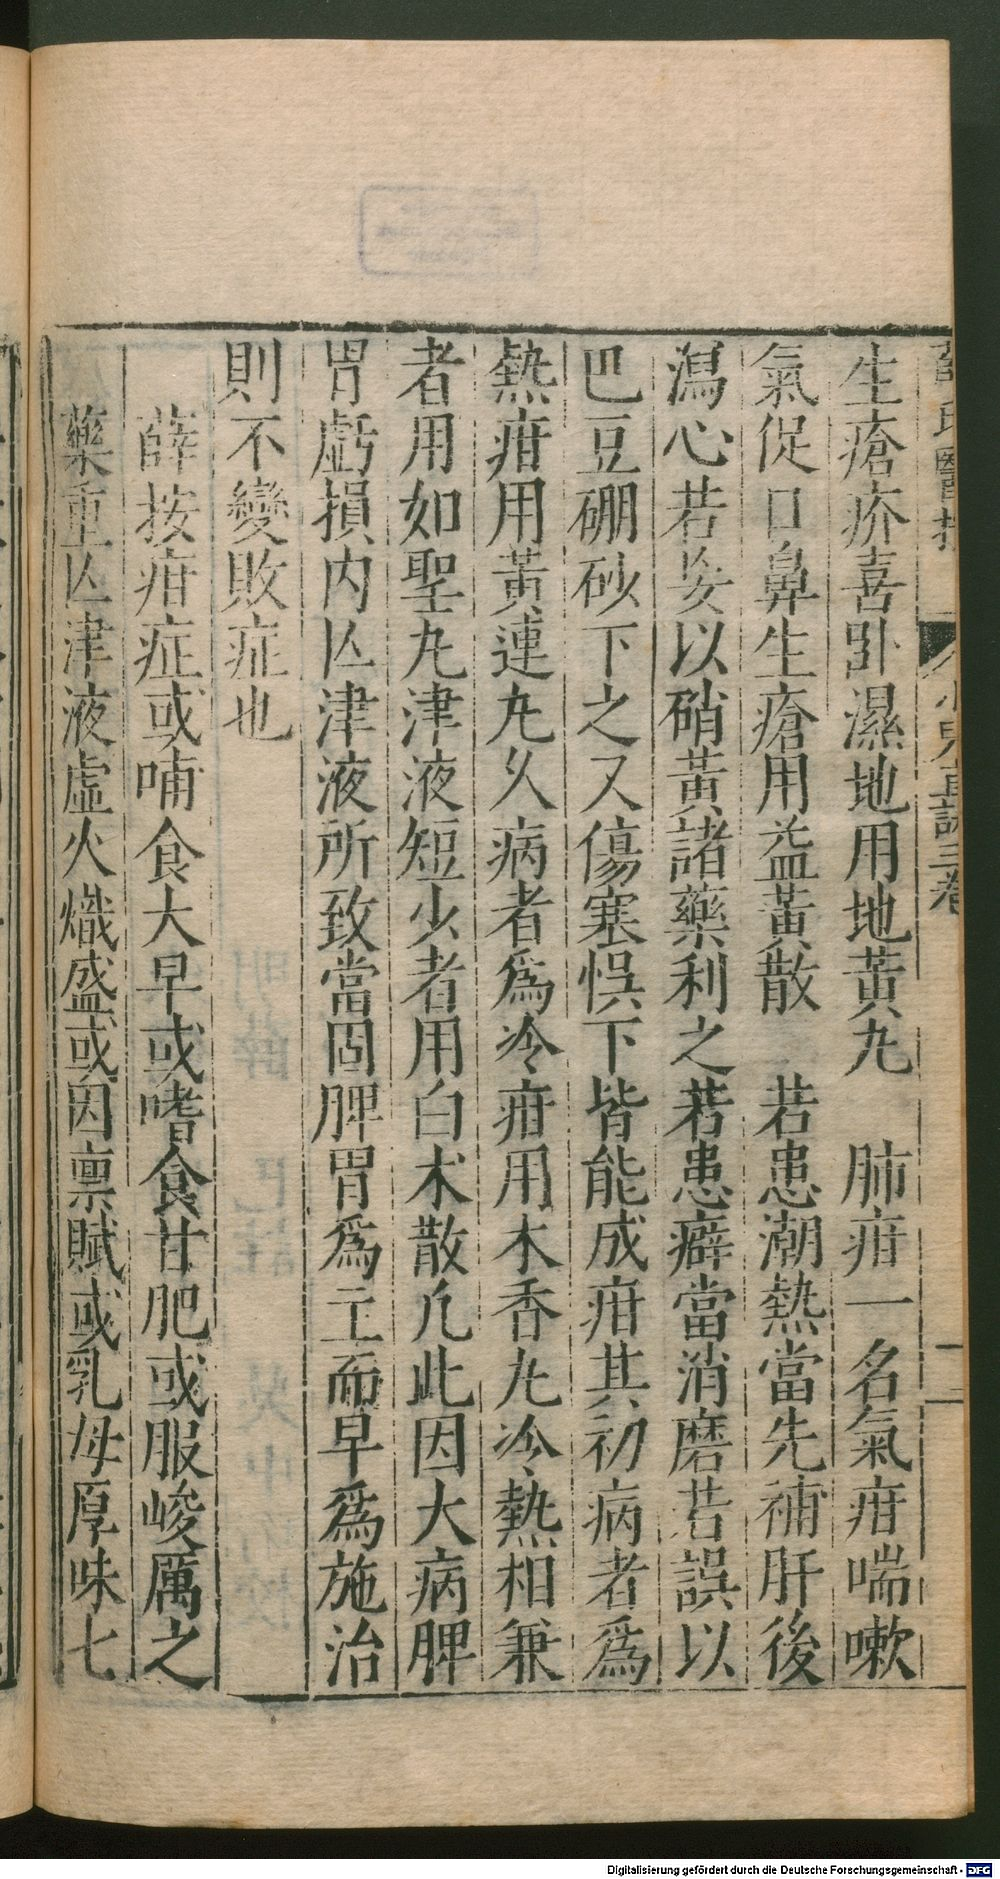 生瘡疥喜卧濕地用地黃丸　肺疳一名氣疳喘嗽
氣促口鼻生瘡用益黃散　若患潮熱當先補肝後
瀉心若妄以硝黃諸藥利之若患癖當消磨若誤以
巴豆硼砂下之又傷寒悞下皆能成疳其初病者爲
熱疳用黃連丸久病者爲冷疳用木香丸冷熱相兼
者用如聖丸津液短少者用白术散凢此因大病脾
胃虧損内亾津液所致當固脾胃爲主而早爲施治
則不變敗症也
薛按疳症或哺食大早或嗜食甘肥或服峻厲之
藥重亾津液虛火熾盛或因禀賦或乳母厚味七
Digitalisierung gefördert durch die Deutsche Forschungsgemeinschaft - DFG